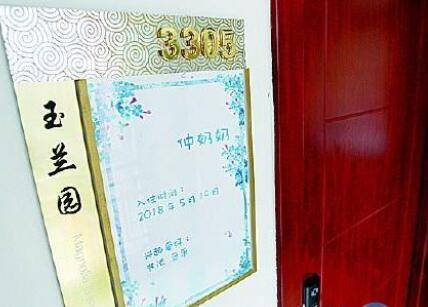 3305
玉兰园
Magnolia
仲奶奶
入住时间:
2018年5月10日
兴趣爱好:
书法 音乐